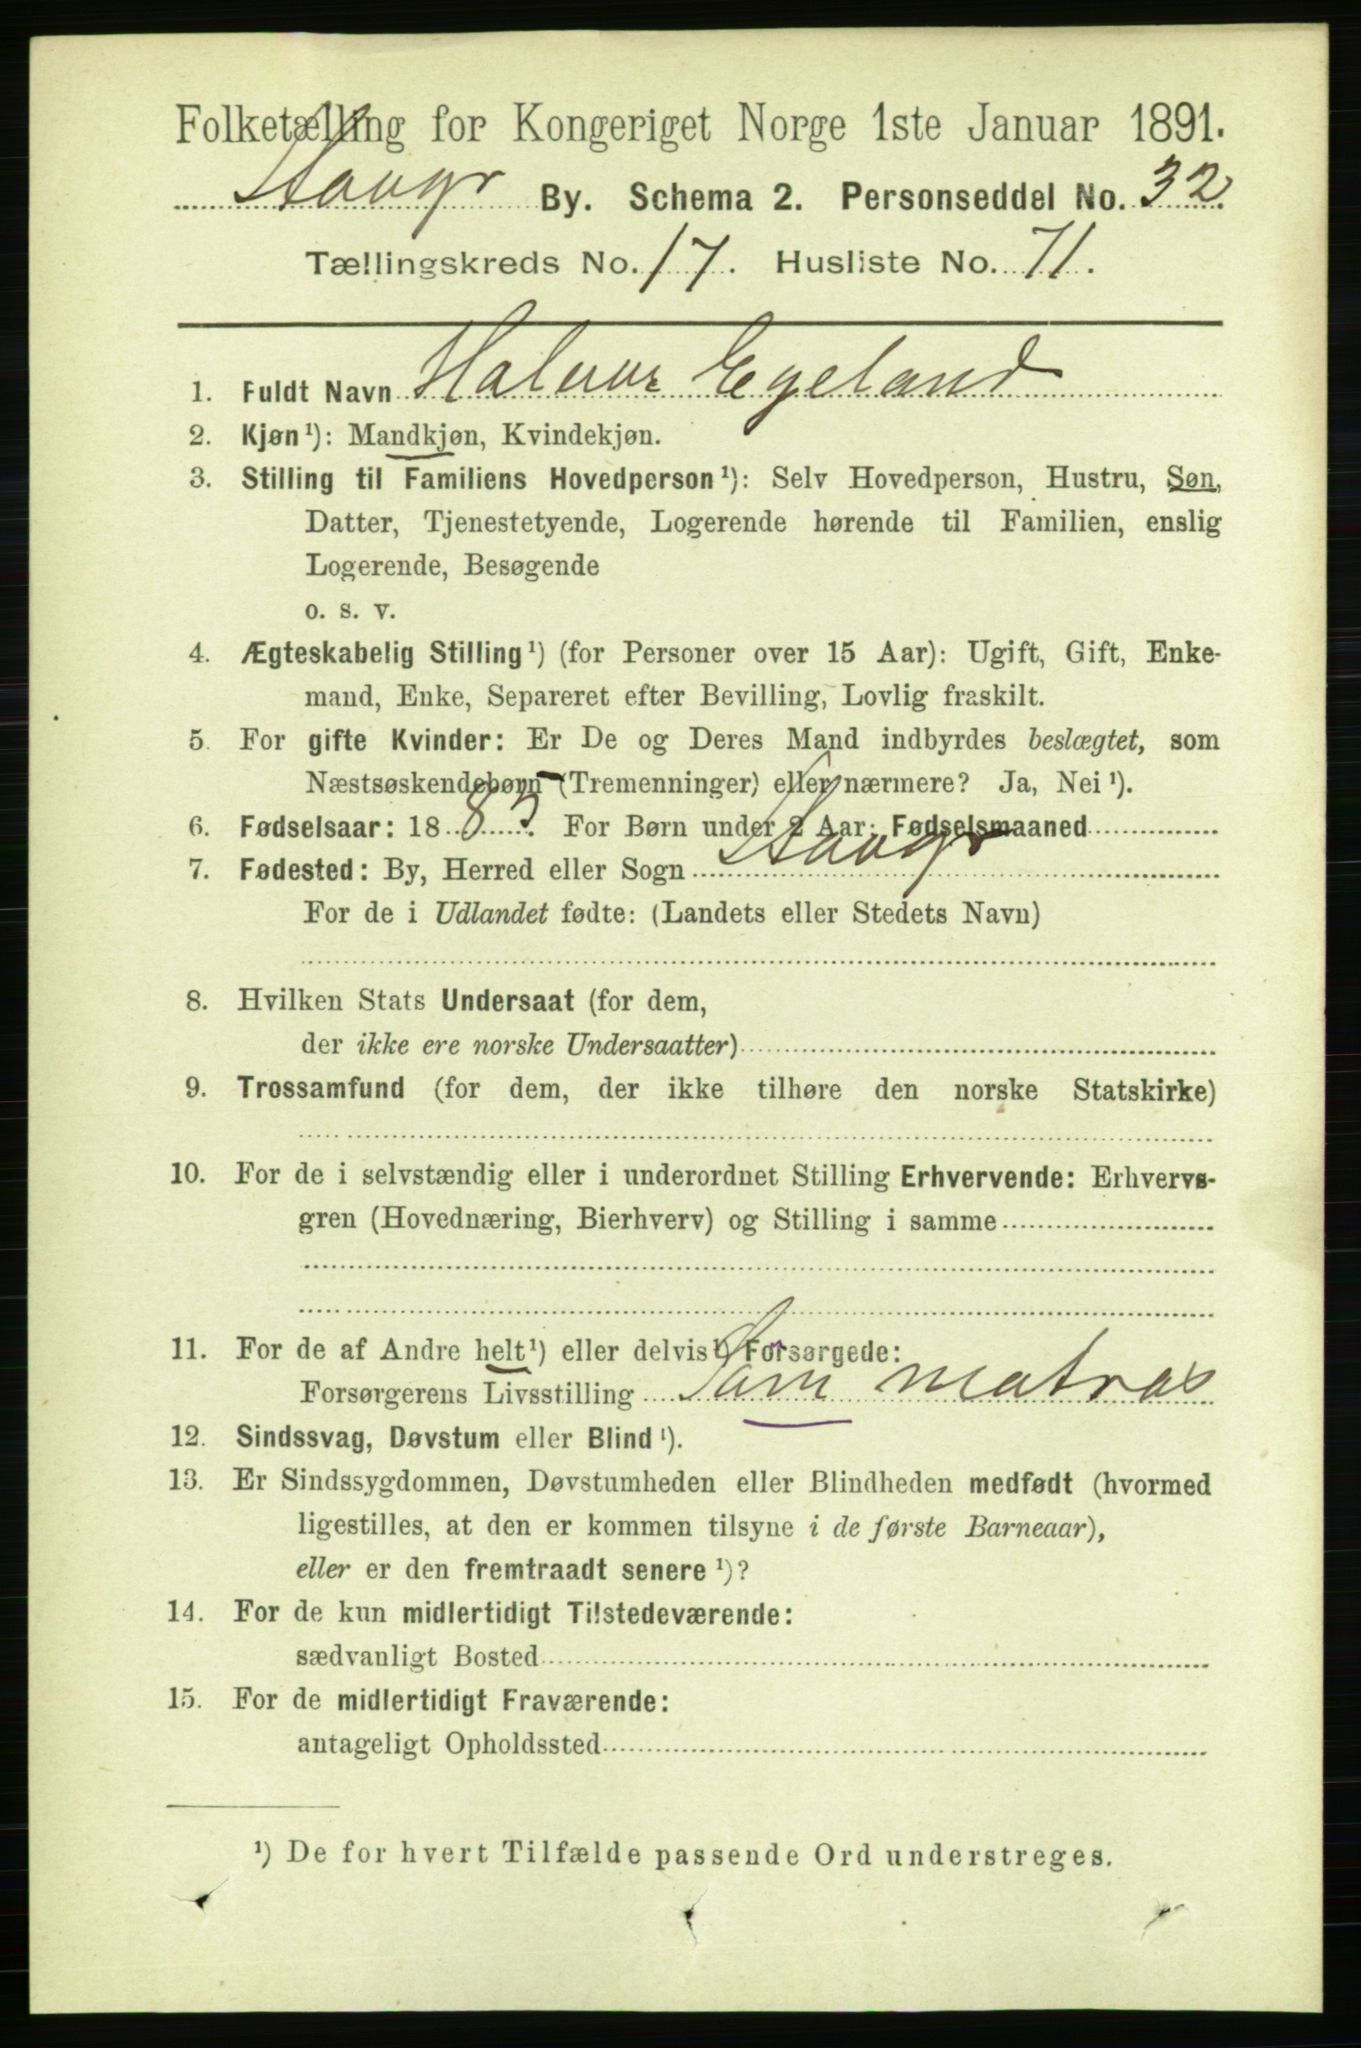 Folketælling for Kongeriget Norge 1ste Januar 1891.
Stavgr By. Schema 2. Personseddel No. 32
Tællingskreds No. 17. Husliste No. 71.
1. Fuldt Navn Halvor Egeland
2. Kjøn¹): Mandkjøn, Kvindekjøn.
3. Stilling til Familiens Hovedperson¹): Selv Hovedperson, Hustru, Søn,
Datter, Tjenestetyende, Logerende hørende til Familien, enslig
Logerende, Besøgende
o. s. v.
4. Ægteskabelig Stilling¹) (for Personer over 15 Aar): Ugift, Gift, Enke-
mand, Enke, Separeret efter Bevilling, Lovlig fraskilt.
5. For gifte Kvinder: Er De og Deres Mand indbyrdes beslægtet, som
Næstsøskendebørn (Tremenninger) eller nærmere? Ja, Nei¹).
6. Fødselsaar: 18 85. For Børn under 2 Aar: Fødselsmaaned
7. Fødested: By, Herred eller Sogn Stavgr
For de i Udlandet fødte: (Landets eller Stedets Navn)
8. Hvilken Stats Undersaat (for dem,
der ikke ere norske Undersaatter)
9. Trossamfund (for dem, der ikke tilhøre den norske Statskirke)
10. For de i selvstændig eller i underordnet Stilling Erhvervende: Erhvervs-
gren (Hovednæring, Bierhverv) og Stilling i samme
11. For de af Andre helt¹) eller delvis¹) Forsørgede:
Forsørgerens Livsstilling Som matros
12. Sindssvag, Døvstum eller Blind¹).
13. Er Sindssygdommen, Døvstumheden eller Blindheden medfødt (hvormed
ligestilles, at den er kommen tilsyne i de første Barneaar),
eller er den fremtraadt senere¹)?
14. For de kun midlertidigt Tilstedeværende:
sædvanligt Bosted
15. For de midlertidigt Fraværende:
antageligt Opholdssted
¹) De for hvert Tilfælde passende Ord understreges.